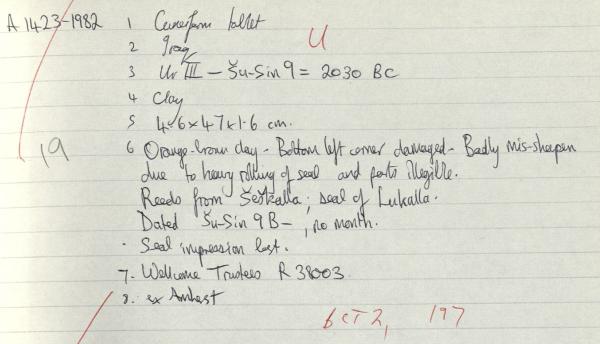 A 1423-1982 1 Cuneiform tablet
U
2 Iraq
3 Ur III - Šu-Sin 9 = 2030 BC
4 Clay
5 4.6 x 4.7 x 1.6 cm.
19
6 Orange-brown clay - Bottom left corner damaged - Badly mis-shapen
due to heavy rolling of seal and parts illegible.
Reeds from Šeškalla; seal of Lukalla.
Dated Šu-Sin 9 B-, no month.
Seal impression lost.
7. Wellcome Trustees R 38003
8. ex Amherst
BCT 2, 197